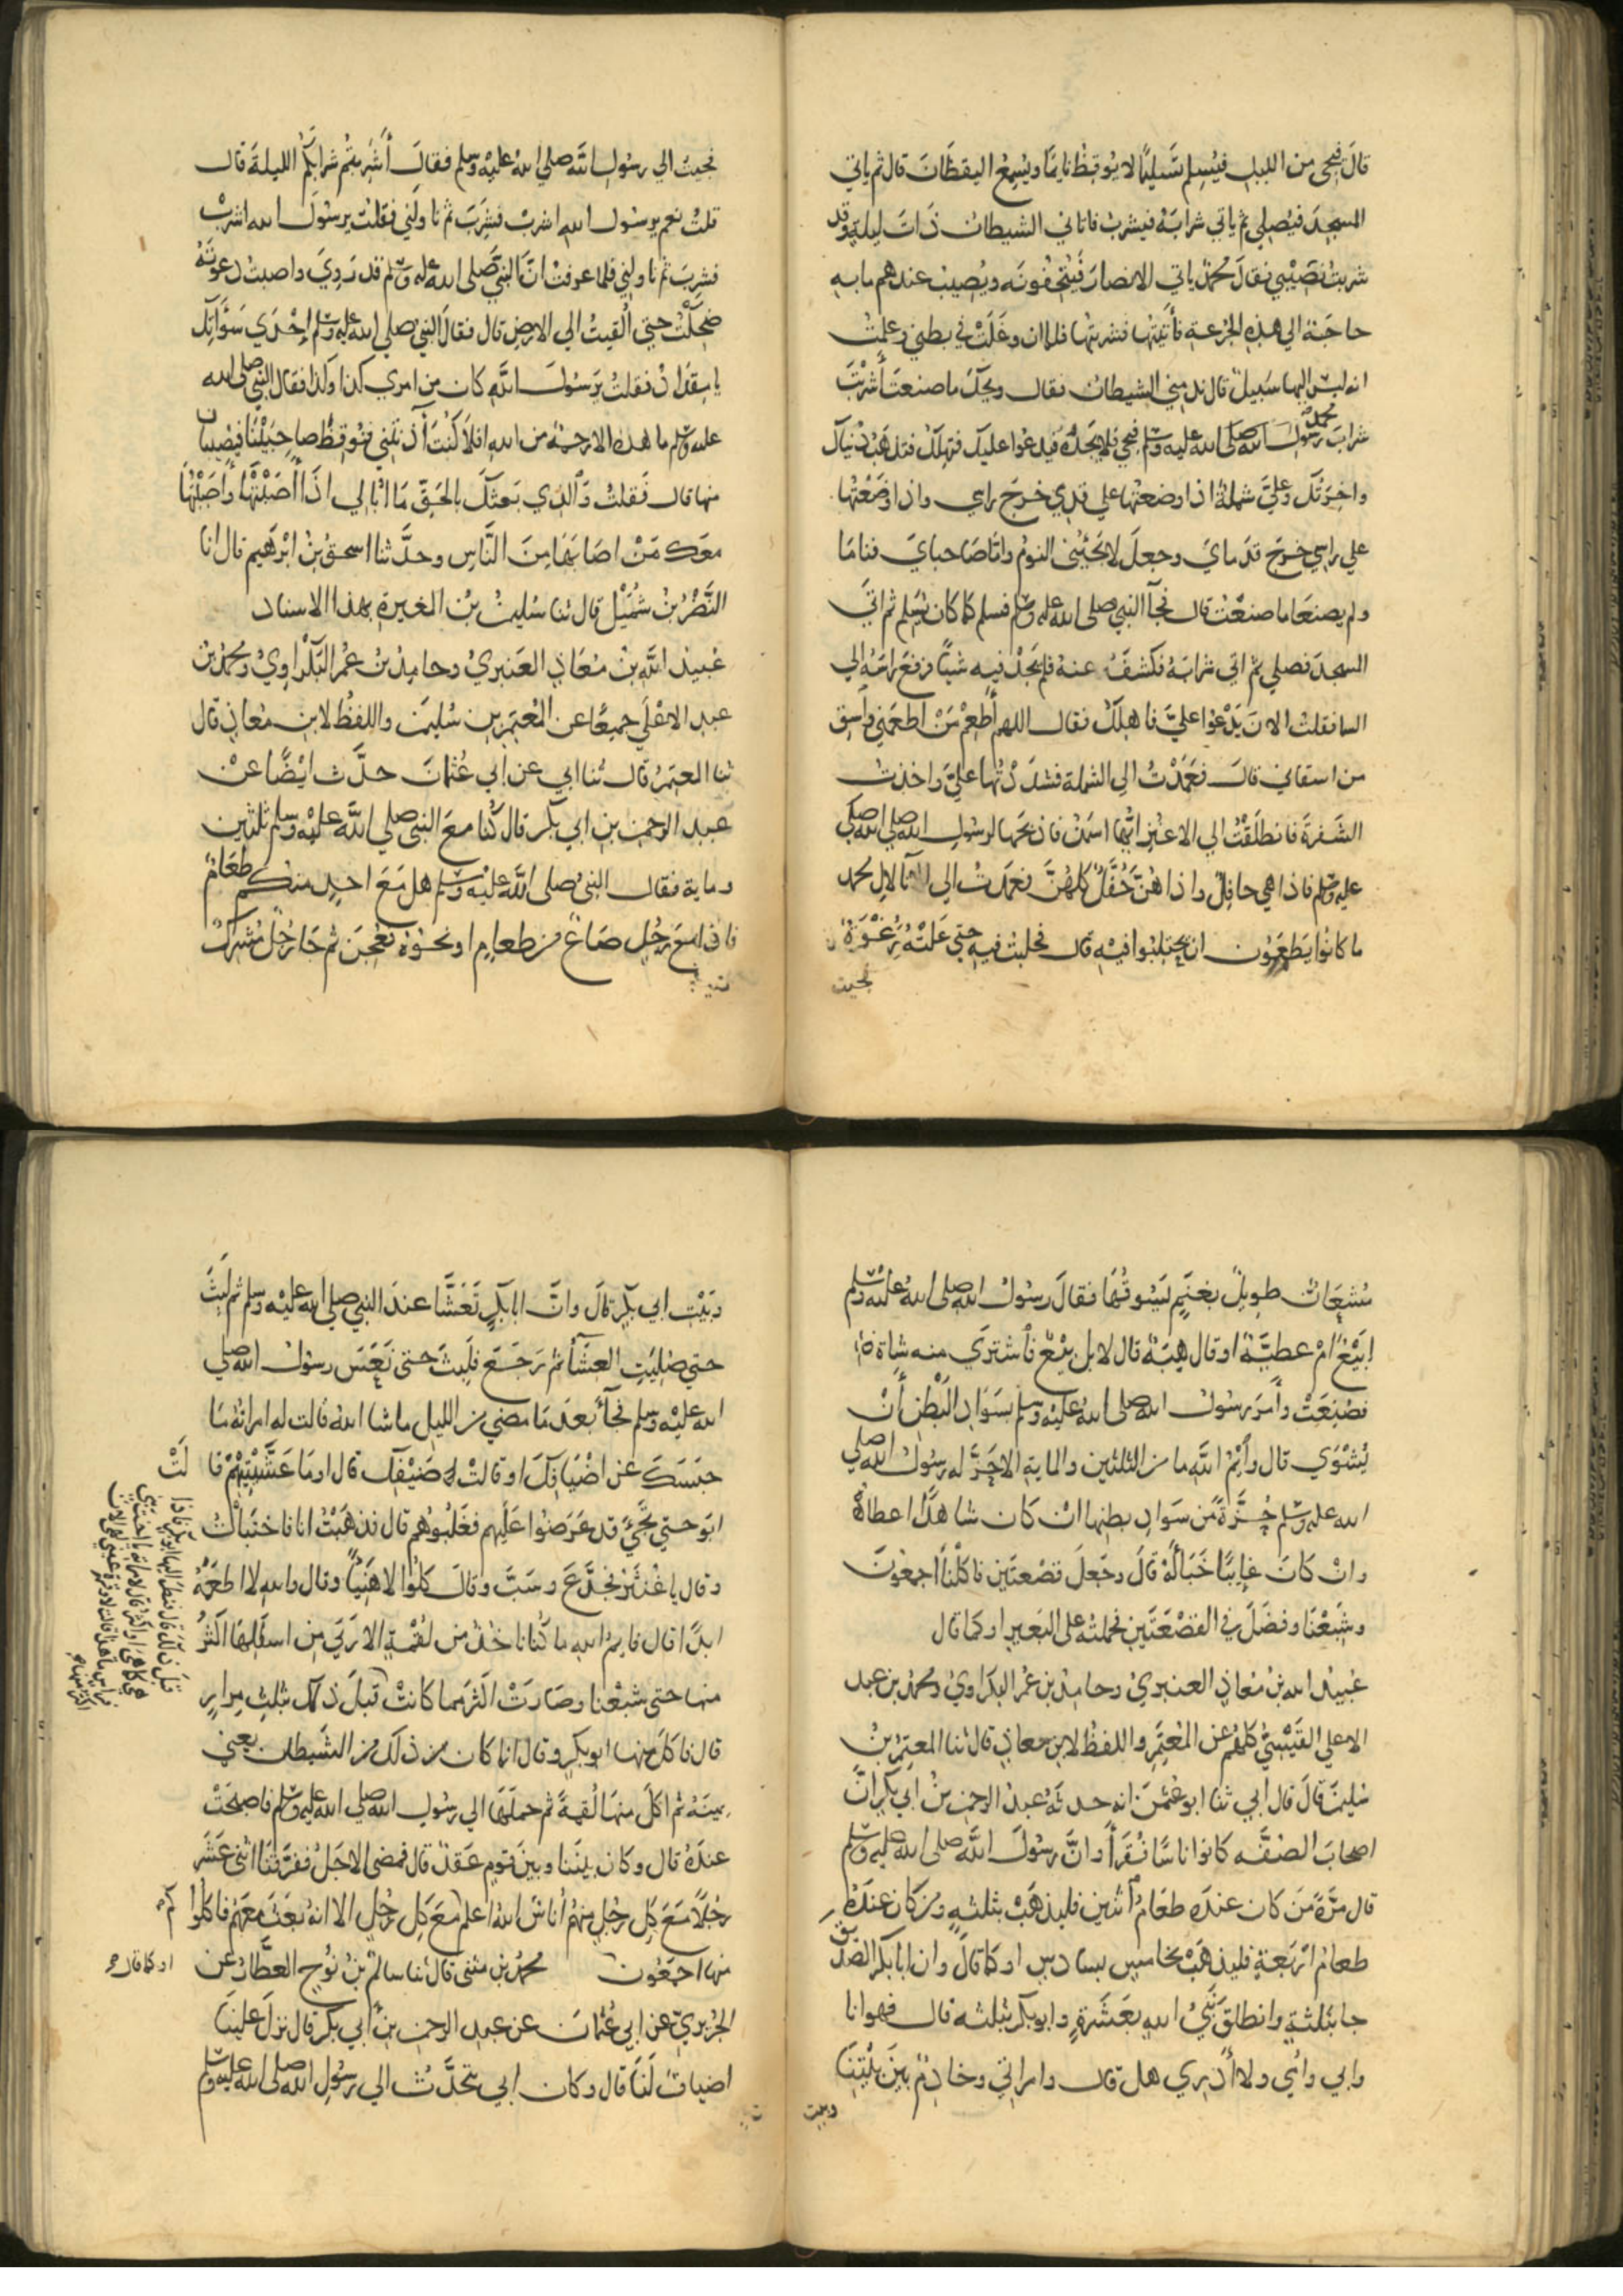 قالَ فيجي من الليل فيُسلم تسليمًا لا يوقظ نايمًا ويُسمع اليقظانَ قال ثم ياتي
المسجدَ فيُصلي ثم ياتي شرابَهُ فيشربُ فاتاني الشيطان ذَاتَ ليلةٍ وقد
شربتُ نَصيْبي فقالَ محمدٌ ياتي الانصارَ فيُتحِفُونَه ويُصيبُ عندهم ما به
حاجَة الي هذه الجُرعةِ فأَتيتُها فشربتُها فلما ان وَغَلَتْ في بطني وعلمتُ
انه ليس اليها سَبيلٌ قال ندمني الشيطان فقال ويحكَ ما صنعتَ أَشَربْتَ
شرابَ محمد رسول الله صلى الله عليه وسلم فيجي فلا يجدُهُ فيدعُوا عليك فتهلكُ فتذهَبُ دُنياك
واخِرَتُك وعليَّ شملةٌ اذا وضعتها علي قدمي خرجَ راسي واذا وضَعْتها
علي راسي خرجَ قدمايَ وجعلَ لا يَجيْئُني النومُ وامّا صَاحبايَ فناما
ولم يصنعَا ما صنعْتُ قال فجآ النبي صلى الله عليه وسلم فسلم كما كان يُسَلم ثم اتَي
المسجدَ فصلي ثم اتي شرابَهُ فكشَفَ عنهُ فلم يَجدْ فيه شيًا فرفعَ راسَهُ الي
السما فقلتُ الانَ يَدْعوا عليَّ فاهلكُ فقال اللهم أَطعِمْ مَنْ اطعَمني وأَسقِ
من اسقاني قالَ فعَمدْتُ الي الشملة فشدَدْتُها عليَّ واخذتُ
الشَفرةَ فانطلَقْتُ الي الاعنُزِ ايُّها اسمنُ فاذبحَها لرسُولِ الله صلي الله
عليه وسلم فاذا هي حافِلٌ واذا هُنَّ حُفَّلٌ كلهُنَّ فعمدتُ الي انآ لالِ محمد
ما كانُوا يَطمَعُون ان يحتلبُوا فيْهِ قال فحلبتُ فيهِ حتي عَلَتْهُ رُغْوَةٌ
فجيت
فجيتُ الي رسُولِ الله صلي الله عليه وسلم فقالَ أَشَرِبتُم شرابَكُم الليلةَ قال
قلتُ نعم يرسُول الله اشربْ فشرِبَ ثم ناولني فقلتُ يرسُولَ الله اشربْ
فشرِبَ ثم ناولني فلما عرفتُ انَّ النبيَّ صَلى الله عليه وسلم قد رَوِيَ واصبتُ دعوتَهُ
ضحِكْتُ حتي اُلقيتُ الي الارضِ قال فقالَ النبيُ صلي الله عليه وسلم إحْدَي سَوْآتِكَ
يا مِقدادُ فقلتُ يرَسُولَ اللهِ كان من امري كذا وكذا فقال النبي صلى الله
عليه وسلم ما هذه الا رحمةٌ من الله افلا كنتَ آذنتَني فنُوقظُ صاحِبَيْنَا فيُصيبان
منها قال فقلتُ وَالذي بَعثكَ بالحَقِّ مَا اُبالي اذَا أَصَبْتَها وأَصَبْتُها
معَك مَنْ اصَابهَا مِنَ النَّاسِ وحدَّثنا اسحقُ بنُ ابرهيم قال انا
النَّضْرُ بْنُ شُمَيْل قال ثنا سُليمنُ بْنُ المغيرةِ بهذا الاسناد
عُبيدُ اللهِ بنُ مُعَاذٍ العَنبريُّ وحامدُ بنُ عُمرَ البَكْرَاوِيُّ ومحمدُ بنُ
عبدِ الاعْلَي جميعًا عن المُعتمِر بنِ سُليمنَ واللفظُ لابنِ مُعاذٍ قال
ثنا المعتمرُ قال ثنا ابي عن ابي عُثمانَ حدَّث ايْضًا عنْ
عبدِ الرحمنِ بنِ ابي بكر قال كُنا معَ النبيِ صلي الله عليه وسلم ثلثين
ومايةً فقال النبيُ صلى الله عليه وسلم هل مَعَ احدٍ منكم طعَامٌ
فاذا معَ رَجُلٍ صَاعٌ من طعامٍ اونحوُهُ فعُجِنَ ثم جَا رَجُلٌ مُشركٌ
مُشعَانٌ طويلٌ بغنَمٍ يَسُوقُها فقالَ رسُولُ الله صلى الله عليه وسلم
ابَيْعٌ امْ عطيَّةٌ او قال هِبَةٌ قال لا بل بَيْعٌ فاشترَي منه شاةً
فصُنِعَتْ وأَمرَ رسُولُ الله صلى الله عليه وسلم بسَوَادِ البَطْنِ أَنْ
يُشْوَي قال وأَيْمُ اللهِ ما من الثلثين والمايةِ الا حَزَّ له رسُولُ الله صلي
الله عليه وسلم حُزَّةً من سَوَادِ بطنِها انْ كَان شاهدًا اعطاهُ
وانْ كَانَ غايبًا خَبَأَ لهُ قالَ وجَعلَ قصْعَتَينِ فاكَلْنَا اجمعُونَ
وشبِعْنَا وفضَلَ في القَصْعَتَين فحَملتُهُ على البَعيرِ اوكما قال
عُبيدُ اللهِ بنُ مُعَاذٍ العنبريُّ وحامدُ بن عُمرَ البكراويُّ ومحمدُ بن عبد
الاعلي القَيْسيُّ كلهُم عن المُعتَمِر واللفظُ لابنِ معاذٍ قال ثنا المعتمرُ بنُ
سُليمنَ قالَ قال ابي ثنا ابو عُثمنَ انه حدثهُ عبدُ الرحمنِ بنُ ابي بكرٍ انَّ
اصحابَ الصُفَّه كانوا ناسًا فُقَرآ وانَّ رسُولَ اللهِ صلى الله عليه وسلم
قال مرَّةً مَنْ كان عندَهُ طعَامُ اثنين فليذهَبْ بثلثهٍ ومن كان عندَهُ
طعامُ ارْبَعَةٍ فليذهَبْ بخامسٍ بسادسٍ اوكما قالَ وان ابا بكر الصديق
جا بثلثهٍ وانطلقَ نَبيُّ اللهِ بعَشَرةٍ وابوبكر بثلثه قال فهو انا
وابي وامُي ولا أَدري هل قال وامراتي وخادِمٌ بينَ بَيْتِنَا
وبيت
وبَيْتِ ابي بكرٍ قال وانَّ ابا بكرٍ تعَشَّا عندَ النبيِ صلي الله عليه وسلم ثم لبِثَ
حتي صُلِيَتِ العشَآ ثم رَجَعَ فلبِثَ حتى نَعَسَ رسُولُ الله صلي
الله عليه وسلم فجآ بَعدَ مَا مضي من الليلِ ما شا الله قالت له امراتُهُ مَا
حبَسَكَ عن اضْيافِكَ او قالتْ ضَيْفِك قال اومَا عَشَّيتِهِم قا لَتْ
ابَو حتي تجيَّ قد عَرَضُوا عَلَيهم فغَلَبُوهُم قال فذهَبْتُ انا فاختبأتُ
وقال يا غُنْثَرُ فجَدَّعَ وسَبَّ وقال كلُوْا لا هَنيًا وقال والله لا اطعَمُهُ
ابدًا قال فايمُ الله ما كُنا ناخُذُ من لُقمَةٍ الا رَبَي من اسفَلِها اكثرُ
منها حتى شبعْنا وصَارَتْ اكثرَ مما كانتْ قبلَ ذلك بثلثِ مِرارٍ
قال فاكَلَ منها ابوبكرٍ وقال انما كان من ذلك من الشيطان يعني
يمينَهُ ثم اكَلَ منهَا لُقمةً ثم حملَهَا الي رسُولِ الله صلي الله عليه وسلم فاصبحَتْ
عندَهُ قال وكان بينَنا وبينَ قَومٍ عَقدٌ قال فمضي الاجَلُ ففرَّقنا اثني عَشَرَ
رجُلًا مَعَ كلِ رجُلٍ منهُم اُناسٌ الله اعلم معَ كلِ رجُلٍ الا انه بَعثَ معَهُم فاكلوا
منها اجمعُون محمدُ بن مثني قال ثنا سالمُ بنُ نُوحٍ العطَّارُ عن
اوكما قال
الجُرَيريِ عن ابي عُثمانَ عن عبدِ الرحمنِ بنِ ابي بكرٍ قال نزلَ علينَا
اضيافٌ لَنَا قال وكان ابي يتحدَّثُ الي رسُولِ الله صلى الله عليه وسلم
قبل ذلك قال فنظرَ اليها ابوبكر فاذا
هي كما هي او اكثر قال لامراته يا اخت بني
فراس ما هذا قالت لا وقرة عيني لهي الان
اكثر منها